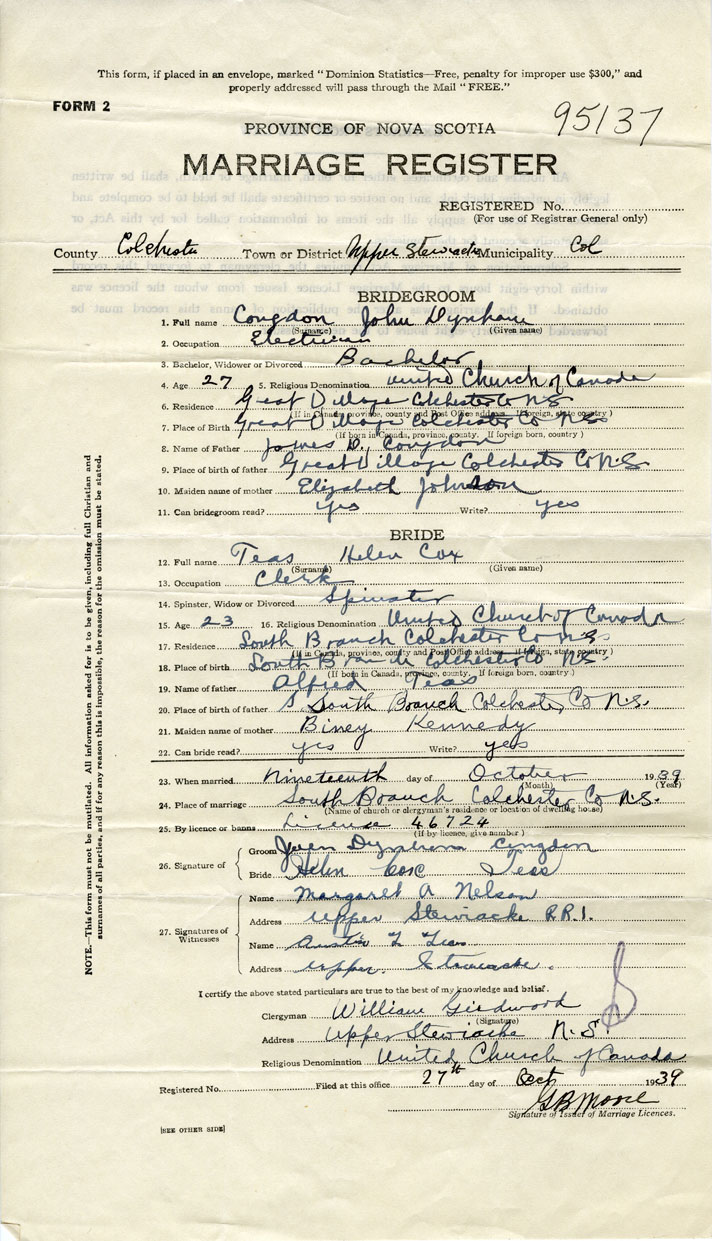 This form, if placed in an envelope, marked "Dominion Statistics—Free, penalty for improper use $300," and
properly addressed will pass through the Mail "FREE."
FORM 2
95137
PROVINCE OF NOVA SCOTIA
MARRIAGE REGISTER
REGISTERED No.
(For use of Registrar General only)
County Colchester Town or District Upper Stewiacke Municipality Col
BRIDEGROOM
1. Full name Congdon John Dynham
(Surname) (Given name)
2. Occupation Electrician
3. Bachelor, Widower or Divorced Bachelor
4. Age 27 5. Religious Denomination United Church of Canada
6. Residence Great Village Colchester Co N.S.
(If in Canada, province, county and Post Office address. If foreign, state country)
7. Place of Birth Great Village Colchester Co N.S.
(If born in Canada, province, county. If foreign born, country)
8. Name of Father James D. Congdon
9. Place of birth of father Great Village Colchester Co N.S.
10. Maiden name of mother Elizabeth Johnson
11. Can bridegroom read? yes Write? yes
BRIDE
12. Full name Teas Helen Cox
(Surname) (Given name)
13. Occupation Clerk
14. Spinster, Widow or Divorced Spinster
15. Age 23 16. Religious Denomination United Church of Canada
17. Residence South Branch Colchester Co N.S.
(If in Canada, province, county and Post Office address. If foreign, state country)
18. Place of birth South Branch Colchester Co N.S.
(If born in Canada, province, county. If foreign born, country)
19. Name of father Alfred Teas
20. Place of birth of father South Branch Colchester Co N.S.
21. Maiden name of mother Biney Kennedy
22. Can bride read? yes Write? yes
23. When married Nineteenth day of October 1939
(Month) (Year)
24. Place of marriage South Branch Colchester Co N.S.
(Name of church or clergyman's residence or location of dwelling house)
25. By licence or banns License 46724
(If by licence, give number)
26. Signature of
Groom Congdon
Bride Helen Cox Teas
27. Signatures of Witnesses
Name Margaret A Nelson
Address Upper Stewiacke R.R.1.
Name Austin L Teas
Address Upper Stewiacke.
I certify the above stated particulars are true to the best of my knowledge and belief.
Clergyman William Girdwood
(Signature)
Address Upper Stewiacke N.S.
Religious Denomination United Church of Canada
Registered No. Filed at this office 27th day of Oct 1939
GB Moore
Signature of Issuer of Marriage Licences.
[SEE OTHER SIDE]
NOTE.—This form must not be mutilated. All information asked for is to be given, including full Christian and
surnames of all parties, and if for any reason this is impossible, the reason for the omission must be stated.